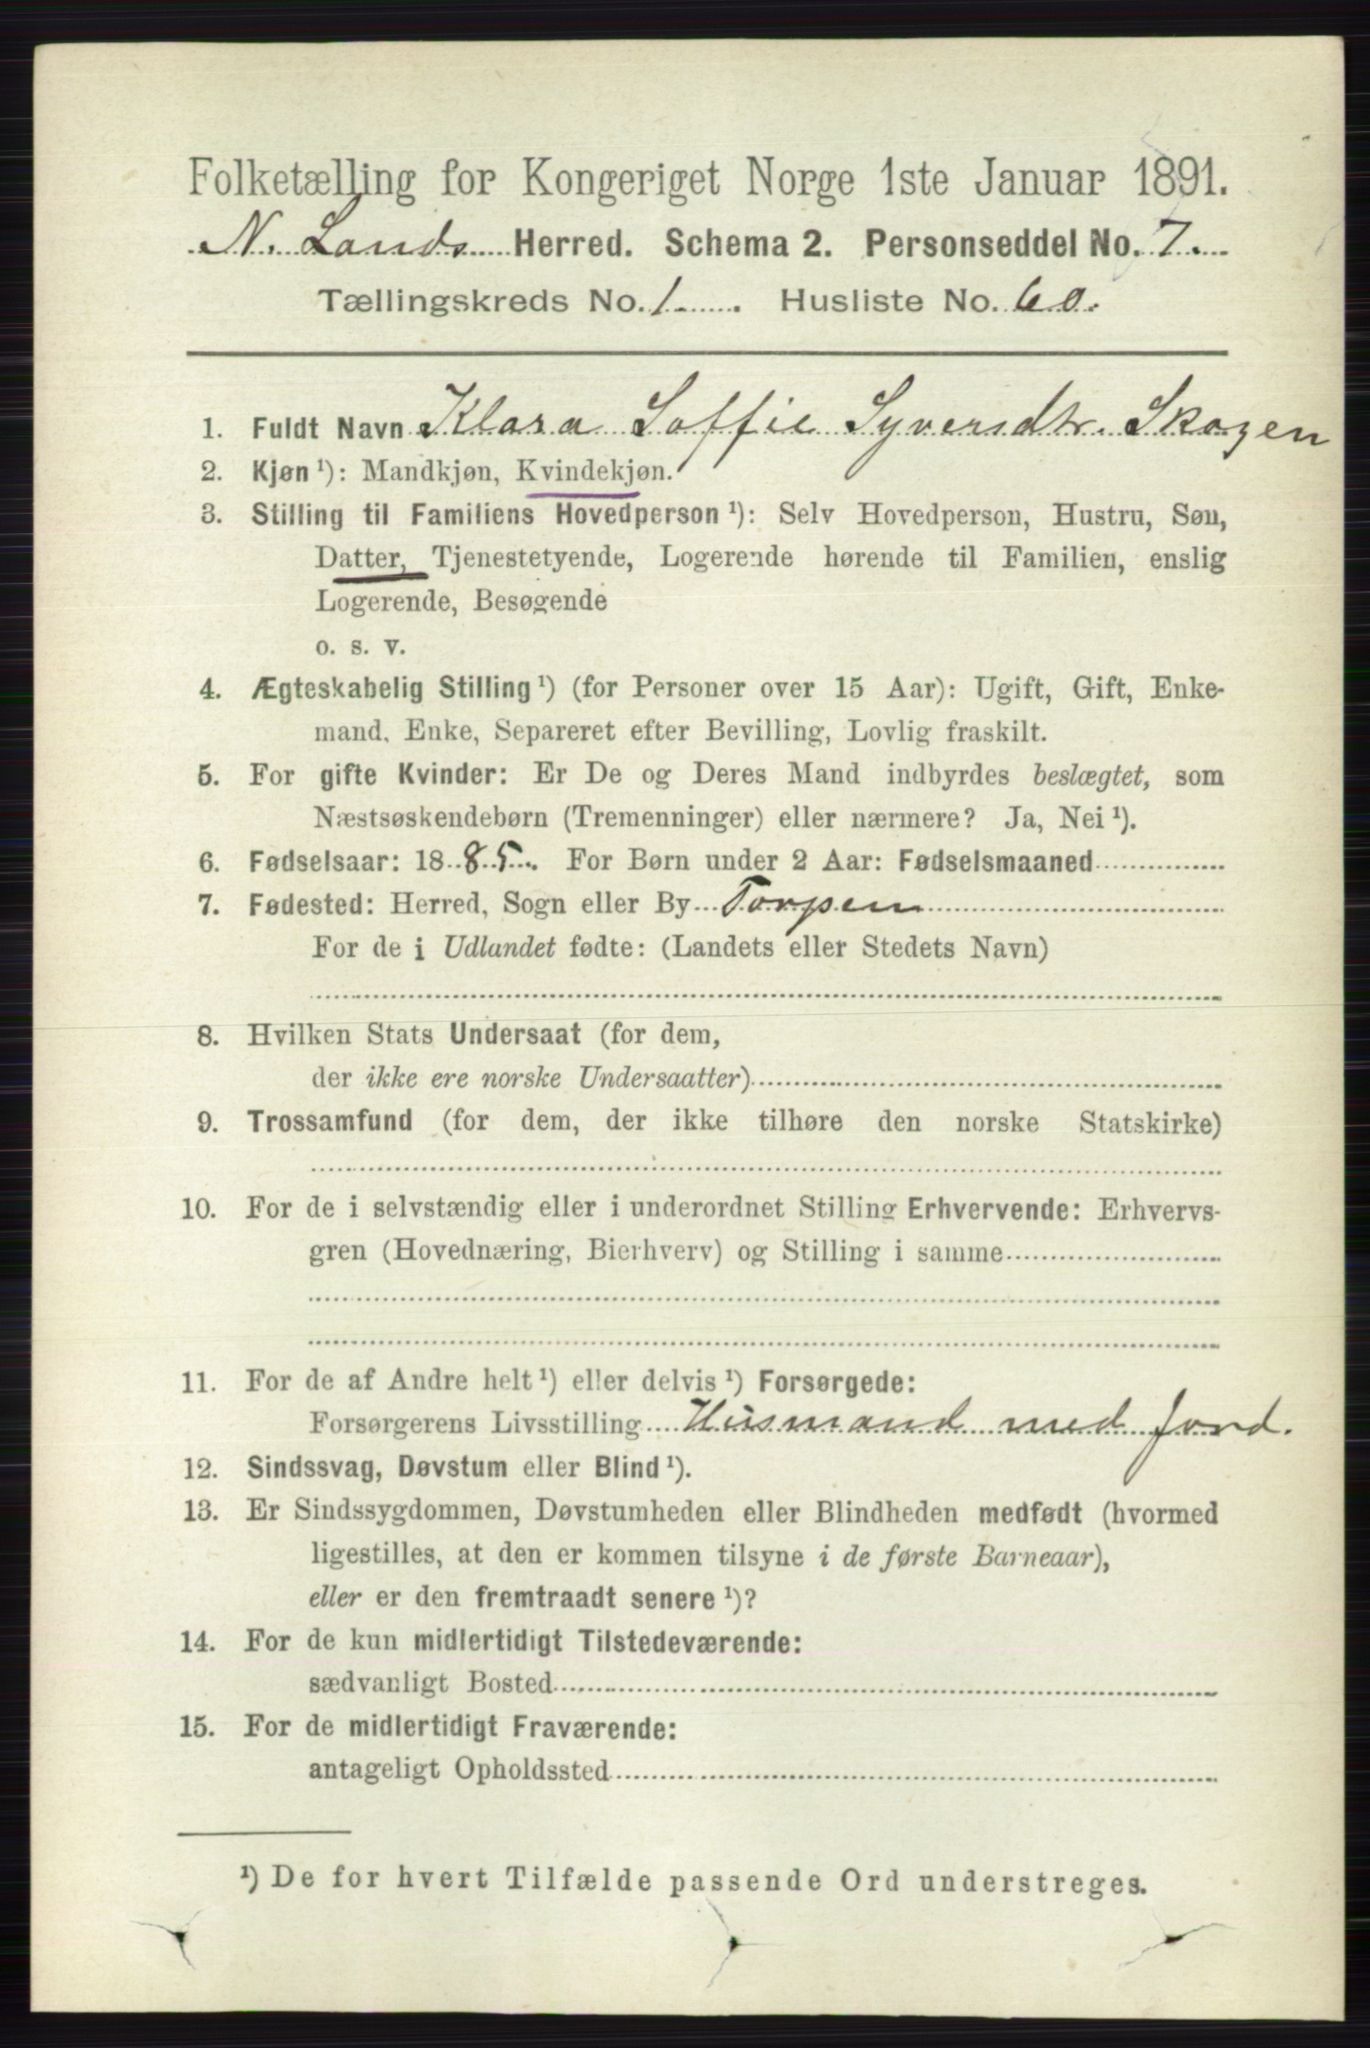 Folketælling for Kongeriget Norge 1ste Januar 1891.
N. Lands Herred. Schema 2. Personseddel No. 7.
Tællingskreds No. 1. Husliste No. 60.
1. Fuldt Navn Klara Soffie Syversdtr. Skogen
2. Kjøn ¹): Mandkjøn, Kvindekjøn.
3. Stilling til Familiens Hovedperson ¹): Selv Hovedperson, Hustru, Søn,
Datter, Tjenestetyende, Logerende hørende til Familien, enslig
Logerende, Besøgende
o. s. v.
4. Ægteskabelig Stilling ¹) (for Personer over 15 Aar): Ugift, Gift, Enke-
mand, Enke, Separeret efter Bevilling, Lovlig fraskilt.
5. For gifte Kvinder: Er De og Deres Mand indbyrdes beslægtet, som
Næstsøskendebørn (Tremenninger) eller nærmere? Ja, Nei ¹).
6. Fødselsaar: 1885. For Børn under 2 Aar: Fødselsmaaned
7. Fødested: Herred, Sogn eller By Torpen
For de i Udlandet fødte: (Landets eller Stedets Navn)
8. Hvilken Stats Undersaat (for dem,
der ikke ere norske Undersaatter)
9. Trossamfund (for dem, der ikke tilhøre den norske Statskirke)
10. For de i selvstændig eller i underordnet Stilling Erhvervende: Erhvervs-
gren (Hovednæring, Bierhverv) og Stilling i samme
11. For de af Andre helt ¹) eller delvis ¹) Forsørgede:
Forsørgerens Livsstilling Husmand med Jord.
12. Sindssvag, Døvstum eller Blind ¹).
13. Er Sindssygdommen, Døvstumheden eller Blindheden medfødt (hvormed
ligestilles, at den er kommen tilsyne i de første Barneaar),
eller er den fremtraadt senere ¹)?
14. For de kun midlertidigt Tilstedeværende:
sædvanligt Bosted
15. For de midlertidigt Fraværende:
antageligt Opholdssted
¹) De for hvert Tilfælde passende Ord understreges.